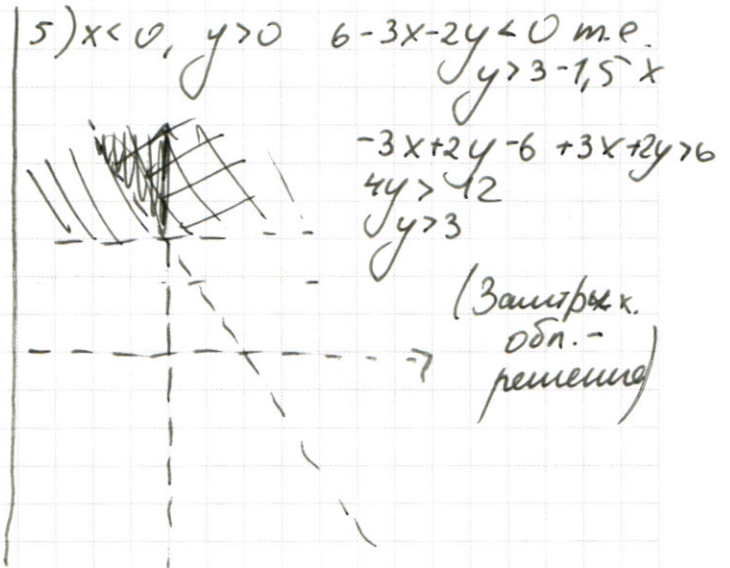 5) x < 0, y > 0 6 - 3x - 2y < 0 т.е.
y > 3 - 1,5 x
-3x + 2y - 6 + 3x + 2y > 6
4y > 12
y > 3
(Заштрих.
обл. -
решение)